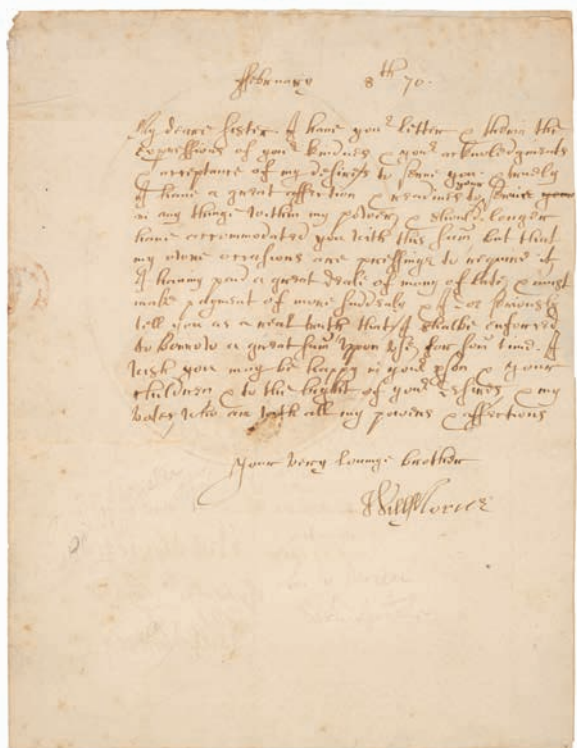 ffebruary 8th 70.
My deare sister. I have your letter & therin the
expressions of your kindnes & your acknowledgments
& acceptance of my desires to serve you. truely
I have a great affection & readines to your service
in any thinge within my power, & should longer
have accommodated you with this sum but that
my owne occasions are pressinge to require it
I having paid a great deale of mony of late, & must
make payment of more sudenly & I seriously
tell you as a reall truth that I shalbe enforced
to borrow a great sum upon for som time. I
wish you may be happy in your & your
children & to the hight of your desires & my
votes, who am with all my powers & affections
Your very lovinge brother
Will Morice